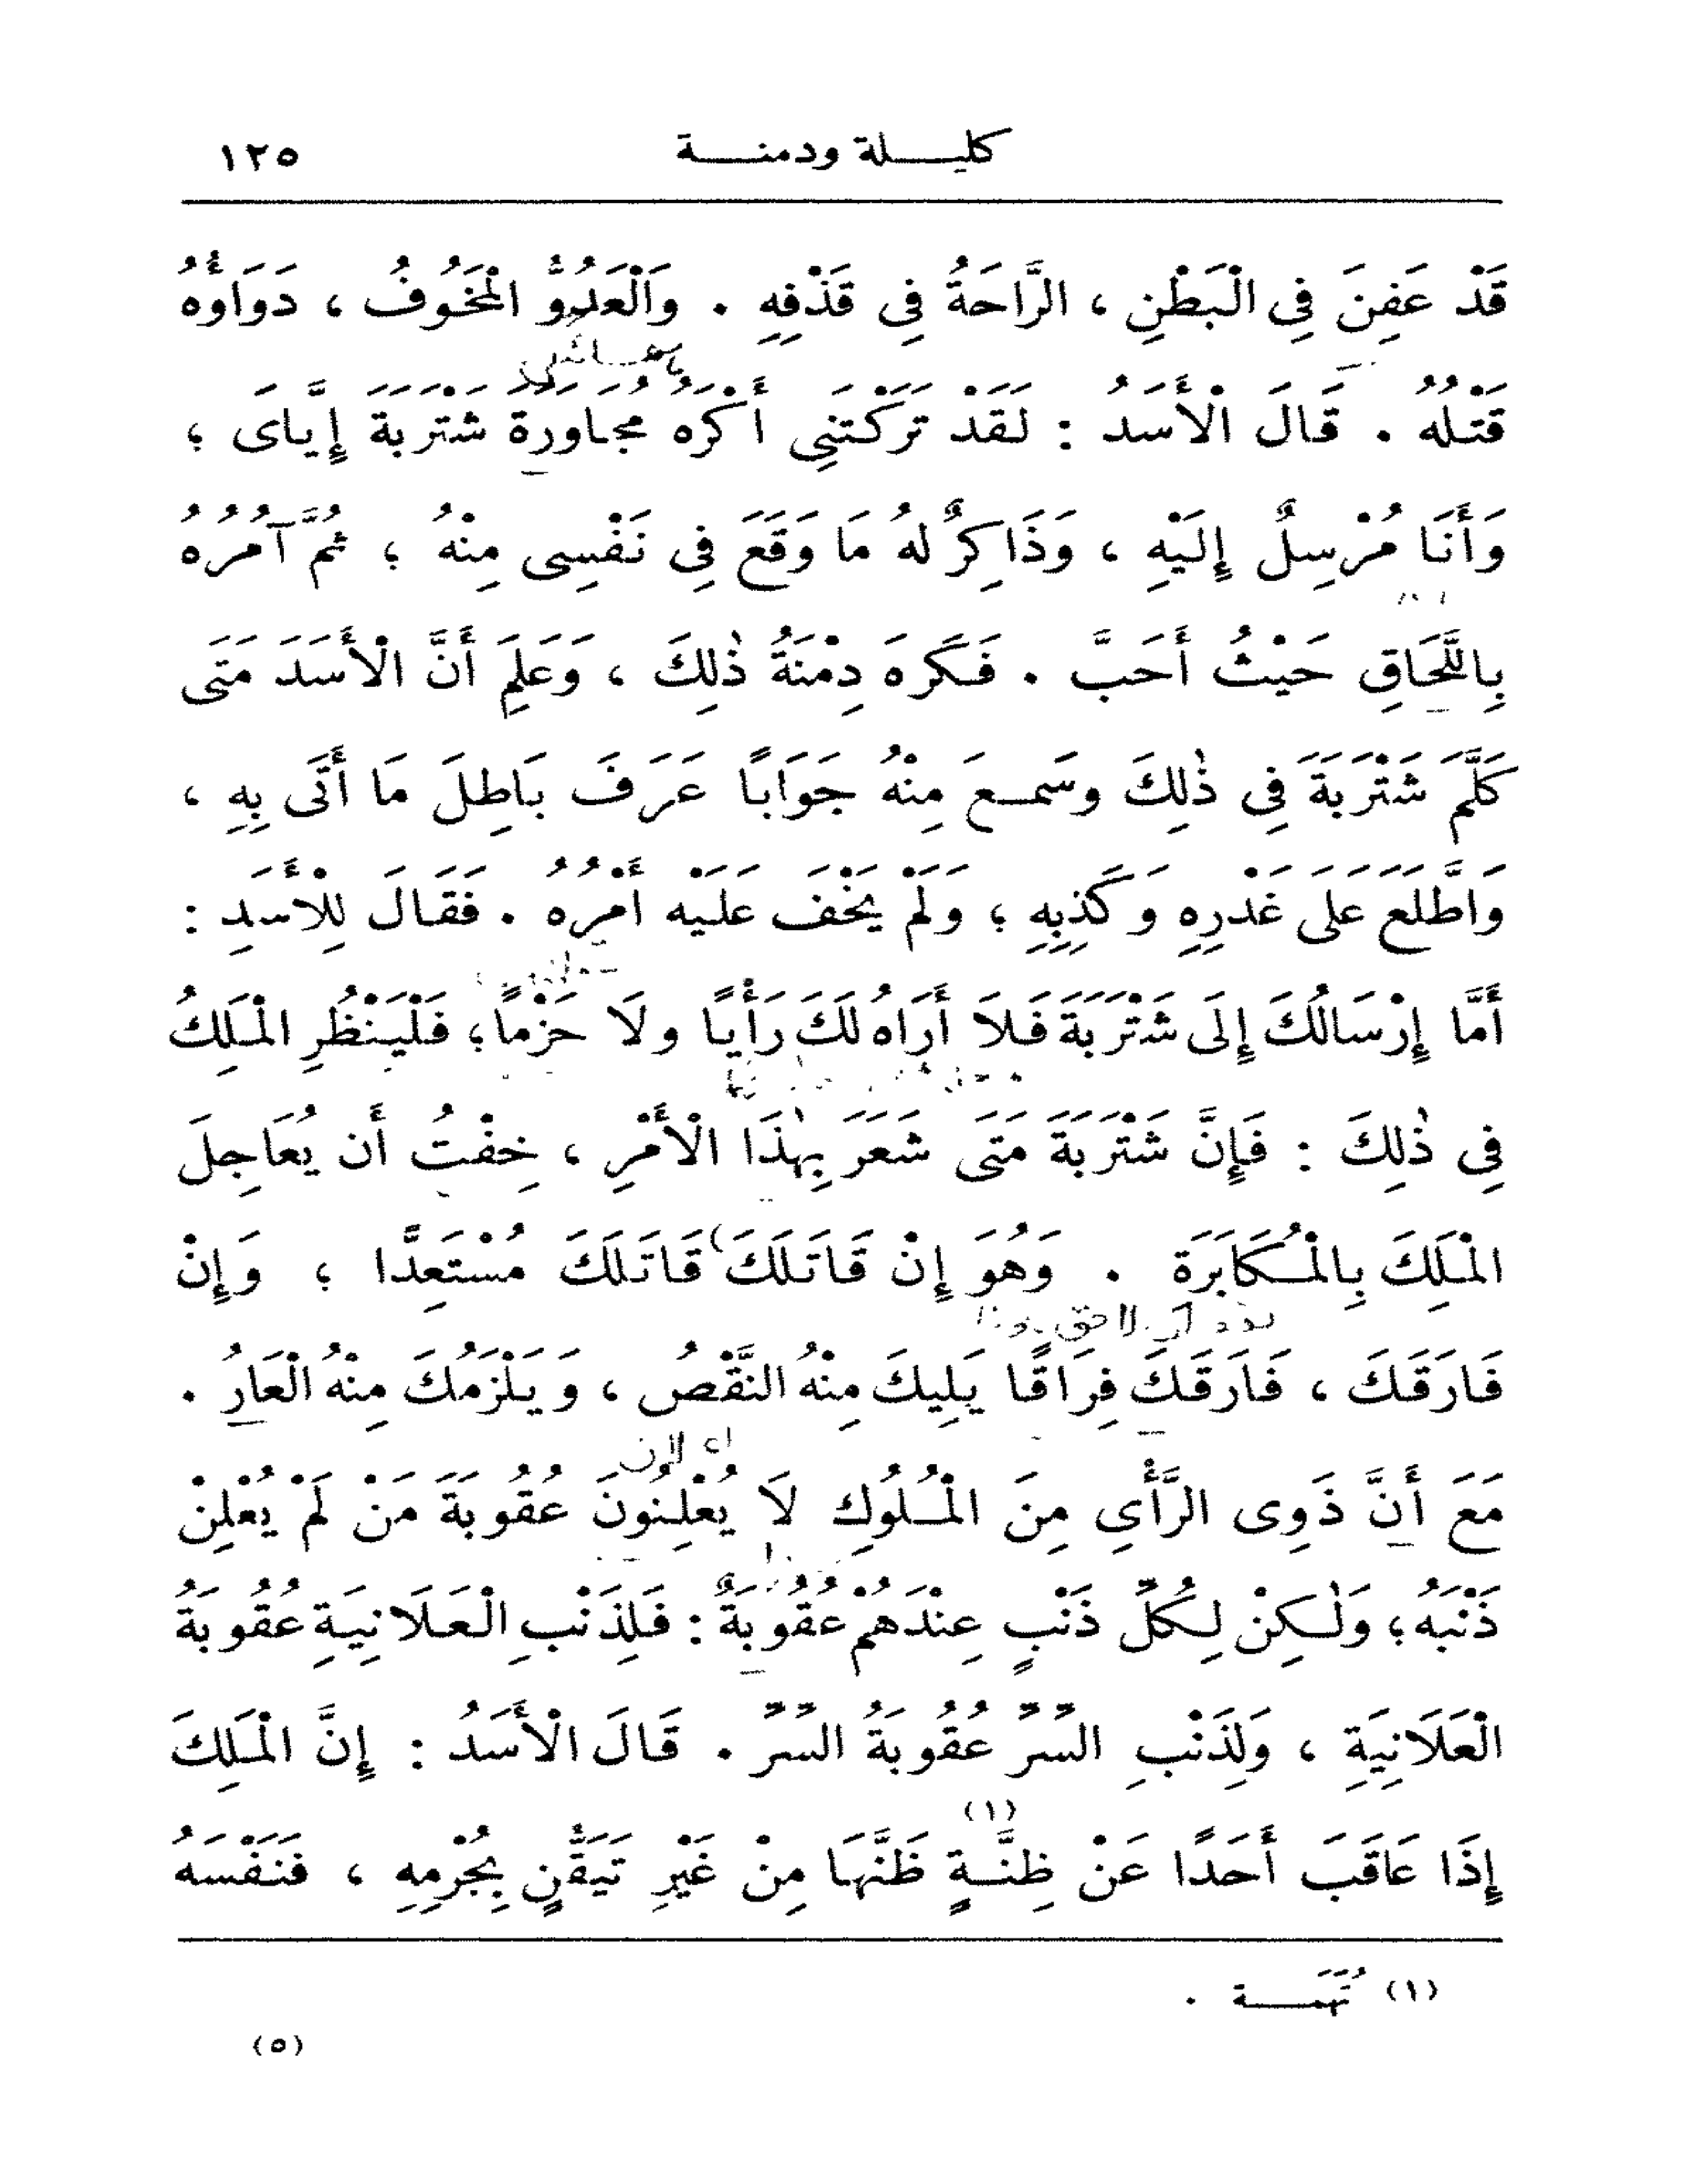 كليلة ودمنة ١٢٥
قَدْ عَفِنَ فِى الْبَطْنِ ، الرَّاحَةُ فِى قَذْفِهِ . وَالْعَدُوُّ الْمَخُوفُ ، دَوَاؤُهُ
قَتْلُهُ . قَالَ الْأَسَدُ : لَقَدْ تَرَكْتَنِى أَكْرَهُ مُجَاوَرَةَ شَتْرَبَةَ إِيَّاىَ ؛
وَأَنَا مُرْسِلٌ إِلَيْهِ ، وَذَاكِرٌ لهُ مَا وَقَعَ فِى نَفْسِى مِنْهُ ؛ ثُمَّ آمُرُهُ
بِاللَّحَاقِ حَيْثُ أَحَبَّ . فَكَرِهَ دِمْنَةُ ذٰلِكَ ، وَعَلِمَ أَنَّ الْأَسَدَ مَتَى
كَلَّمَ شَتْرَبَةَ فِى ذٰلِكَ وسَمِعَ مِنْهُ جَوَابًا عَرَفَ بَاطِلَ مَا أَتَى بِهِ ،
وَاطَّلَعَ عَلَى غَدْرِهِ وَكَذِبِهِ ؛ وَلَمْ يَخْفَ عَلَيْه أَمْرُهُ . فَقَالَ لِلْأَسَدِ :
أَمَّا إِرْسَالُكَ إِلَى شَتْرَبَةَ فَلَا أَرَاهُ لَكَ رَأْيًا ولَا حَزْمًا ؛ فَلْيَنْظُرِ الْمَلِكُ
فِى ذٰلِكَ : فَإِنَّ شَتْرَبَةَ مَتَى شَعَرَ بِهٰذَا الْأَمْرِ ، خِفْتُ أَن يُعَاجِلَ
الْمَلِكَ بِالْمُكَابَرَةِ . وَهُوَ إِنْ قَاتَلَكَ قَاتَلَكَ مُسْتَعِدًّا ؛ وَإِنْ
فَارَقَكَ ، فَارَقَكَ فِرَاقًا يَلِيكَ مِنْهُ النَّقْصُ ، وَيَلْزَمُكَ مِنْهُ الْعَارُ .
مَعَ أَنَّ ذَوِى الرَّأْىِ مِنَ الْمُلُوكِ لَا يُعْلِنُونَ عُقُوبَةَ مَنْ لَمْ يُعْلِنْ
ذَنْبَهُ ؛ وَلٰكِنْ لِكُلِّ ذَنْبٍ عِنْدَهُمْ عُقُوبَةٌ : فَلِذَنْبِ الْعَلَانِيَةِ عُقُوبَةُ
الْعَلَانِيَةِ ، وَلِذَنْبِ السِّرِّ عُقُوبَةُ السِّرِّ . قَالَ الْأَسَدُ : إِنَّ الْمَلِكَ
إِذَا عَاقَبَ أَحَدًا عَنْ ظِنَّةٍ (١) ظَنَّهَا مِنْ غَيْرِ تَيَقُّنٍ بِجُرْمِهِ ، فَنَفْسَهُ
(١) تُهَمَة .
(٥)